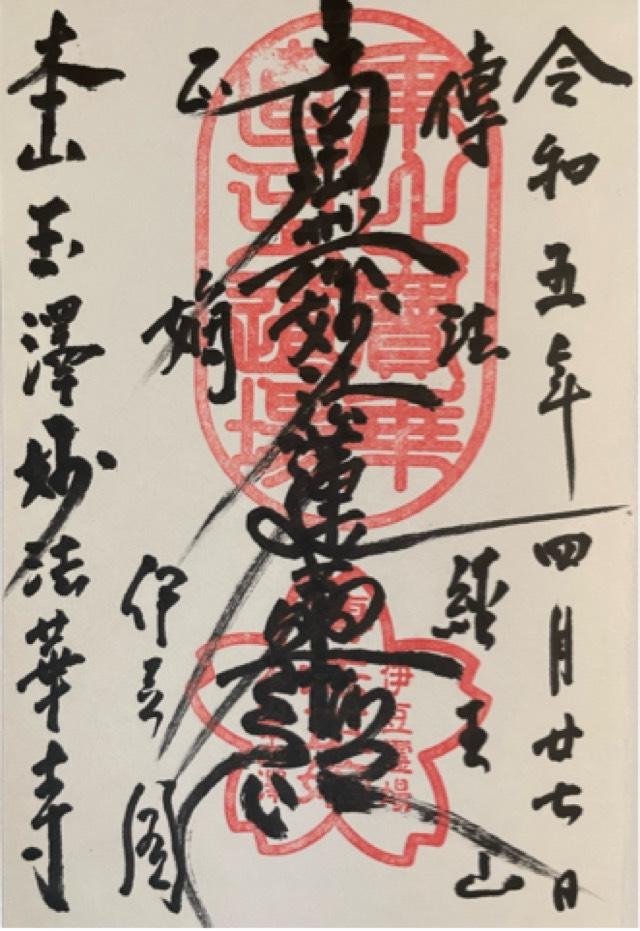 令和五年四月廿七日
傳法 經王山
南無妙法蓮華經
正嫡 伊豆國
本山玉澤妙法華寺
伊豆靈場